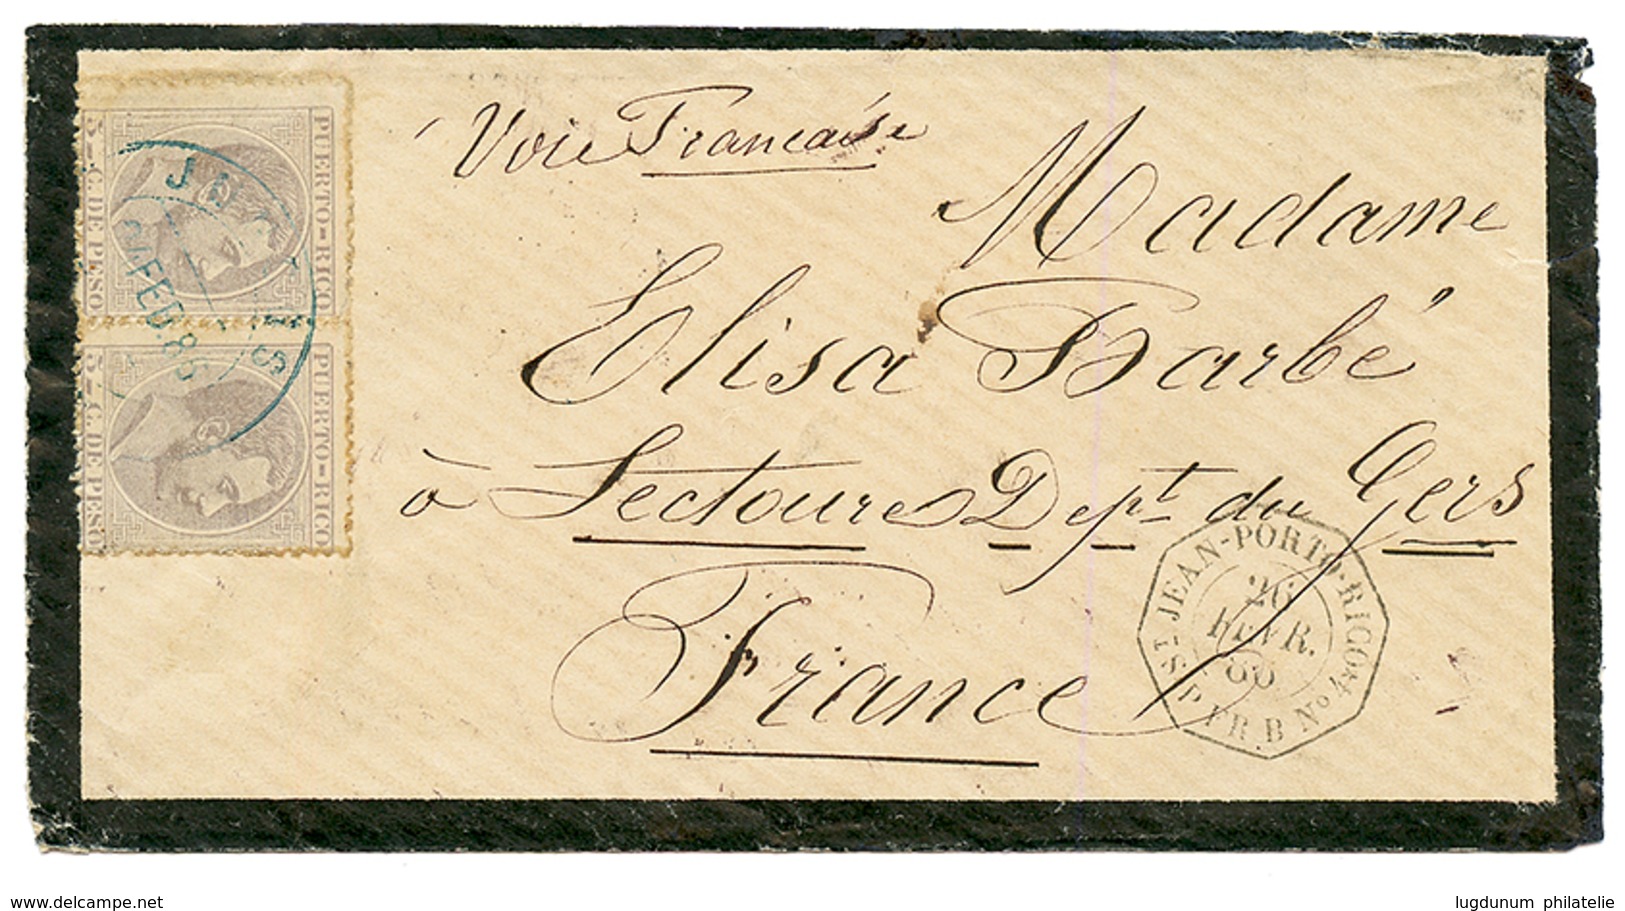 Voie Francaise
Madame
Elisa Barbé
à Lectoure Dept du Gers
France
PUERTO-RICO
5 C. DE PESO
PUERTO-RICO
5 C. DE PESO
FEB. 86
ST JEAN-PORTO-RICO
26
FEVR.
86
P. FR. B No 4
www.delcampe.net
lugdunum philatelie